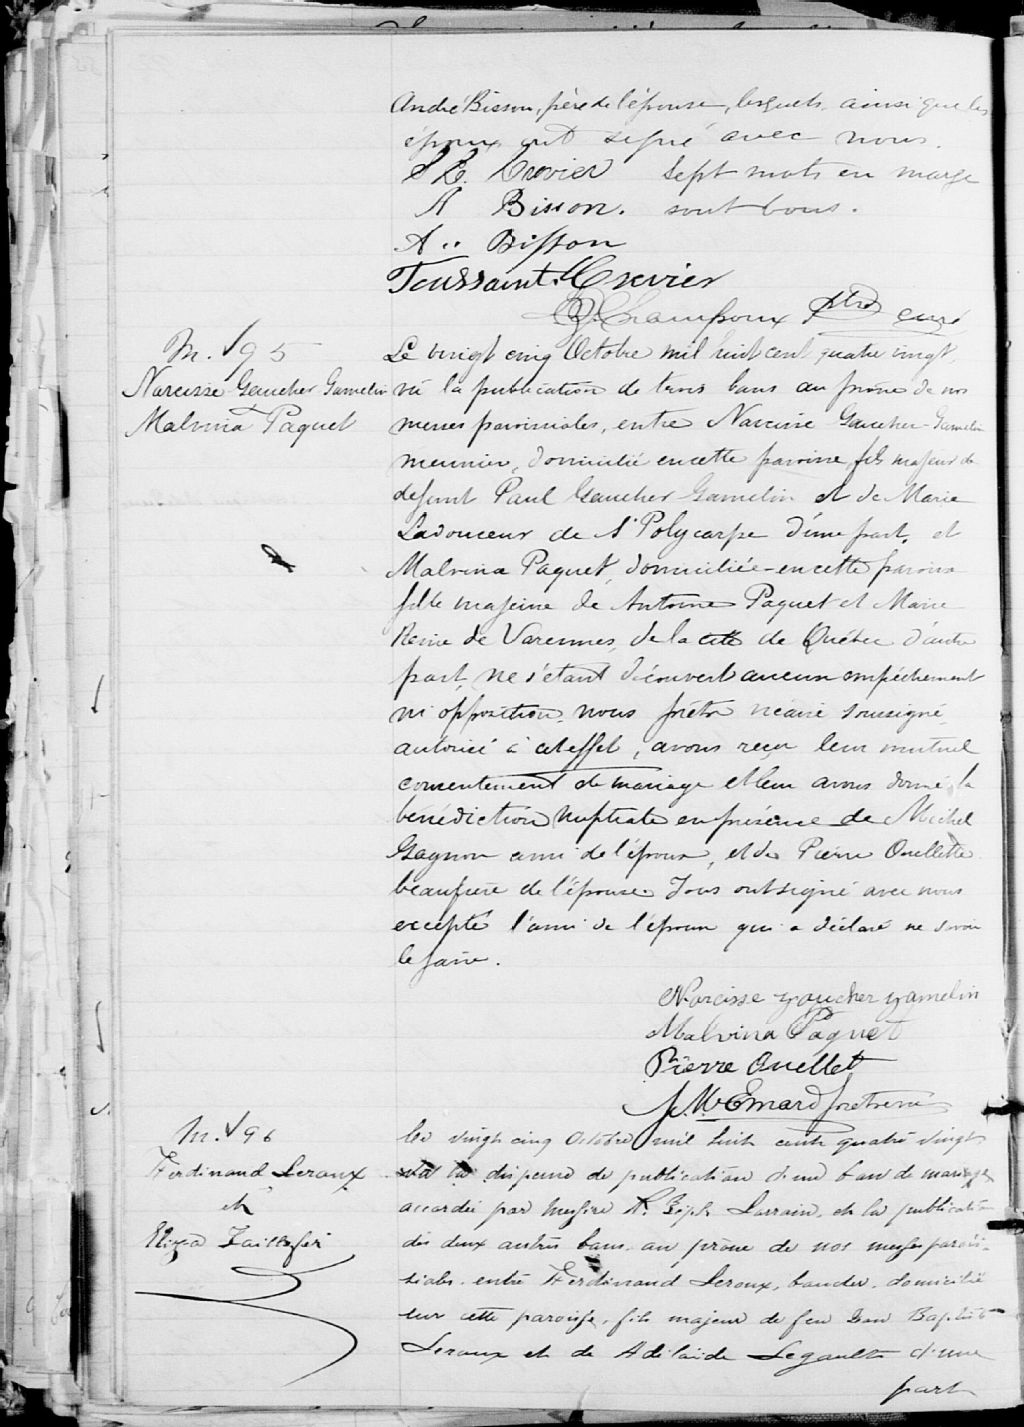 André Bisson, père de l'épouse, lesquels, ainsi que les
époux ont signé avec nous.
Crevier sept mots en marge
A Bisson. sont bons.
A.. Bisson
Toussaint Crevier
Champoux Ptre curé
M. 95
Narcisse Gaucher Gamelin
Malvina Paquet
Le vingt cinq Octobre mil huit cent quatre vingt,
vu la publication de trois bans au prône de nos
messes paroissiales, entre Narcisse Gaucher-Gamelin
meunier, domicilié en cette paroisse, fils majeur de
defunt Paul Gaucher Gamelin et de Marie
Ladouceur de St Polycarpe d'une part, et
Malvina Paquet, domiciliée en cette paroisse
fille majeure de Antoine Paquet et Marie
Reine de Varennes, de la cité de Québec d'autre
part, ne s'étant découvert aucun empêchement
ni opposition, nous prêtre vicaire soussigné,
autorisé à cet effet, avons reçu leur mutuel
consentement de mariage et leur avons donné la
bénédiction nuptiale en présence de Michel
Gagnon ami de l'époux, et de Pierre Ouellette
beaufrère de l'épouse. Tous ont signé avec nous
excepté l'ami de l'époux qui a déclaré ne savoir
le faire.
Narcisse gaucher gamelin
Malvina Paquet
Pierre Ouellet
J. M. Emard
M. 96
Ferdinand Leroux
et
Eliza Taillefer
Le vingt cinq Octobre mil huit cent quatre vingt
vu la dispense de publication d'un ban de mariage
accordée par Messire Lorrain, et la publication
des deux autres bans au prône de nos messes parois-
siales entre Ferdinand Leroux, domicilié
sur cette paroisse, fils majeur de feu Jean Baptiste
Leroux et de Adélaïde Legault d'une
part